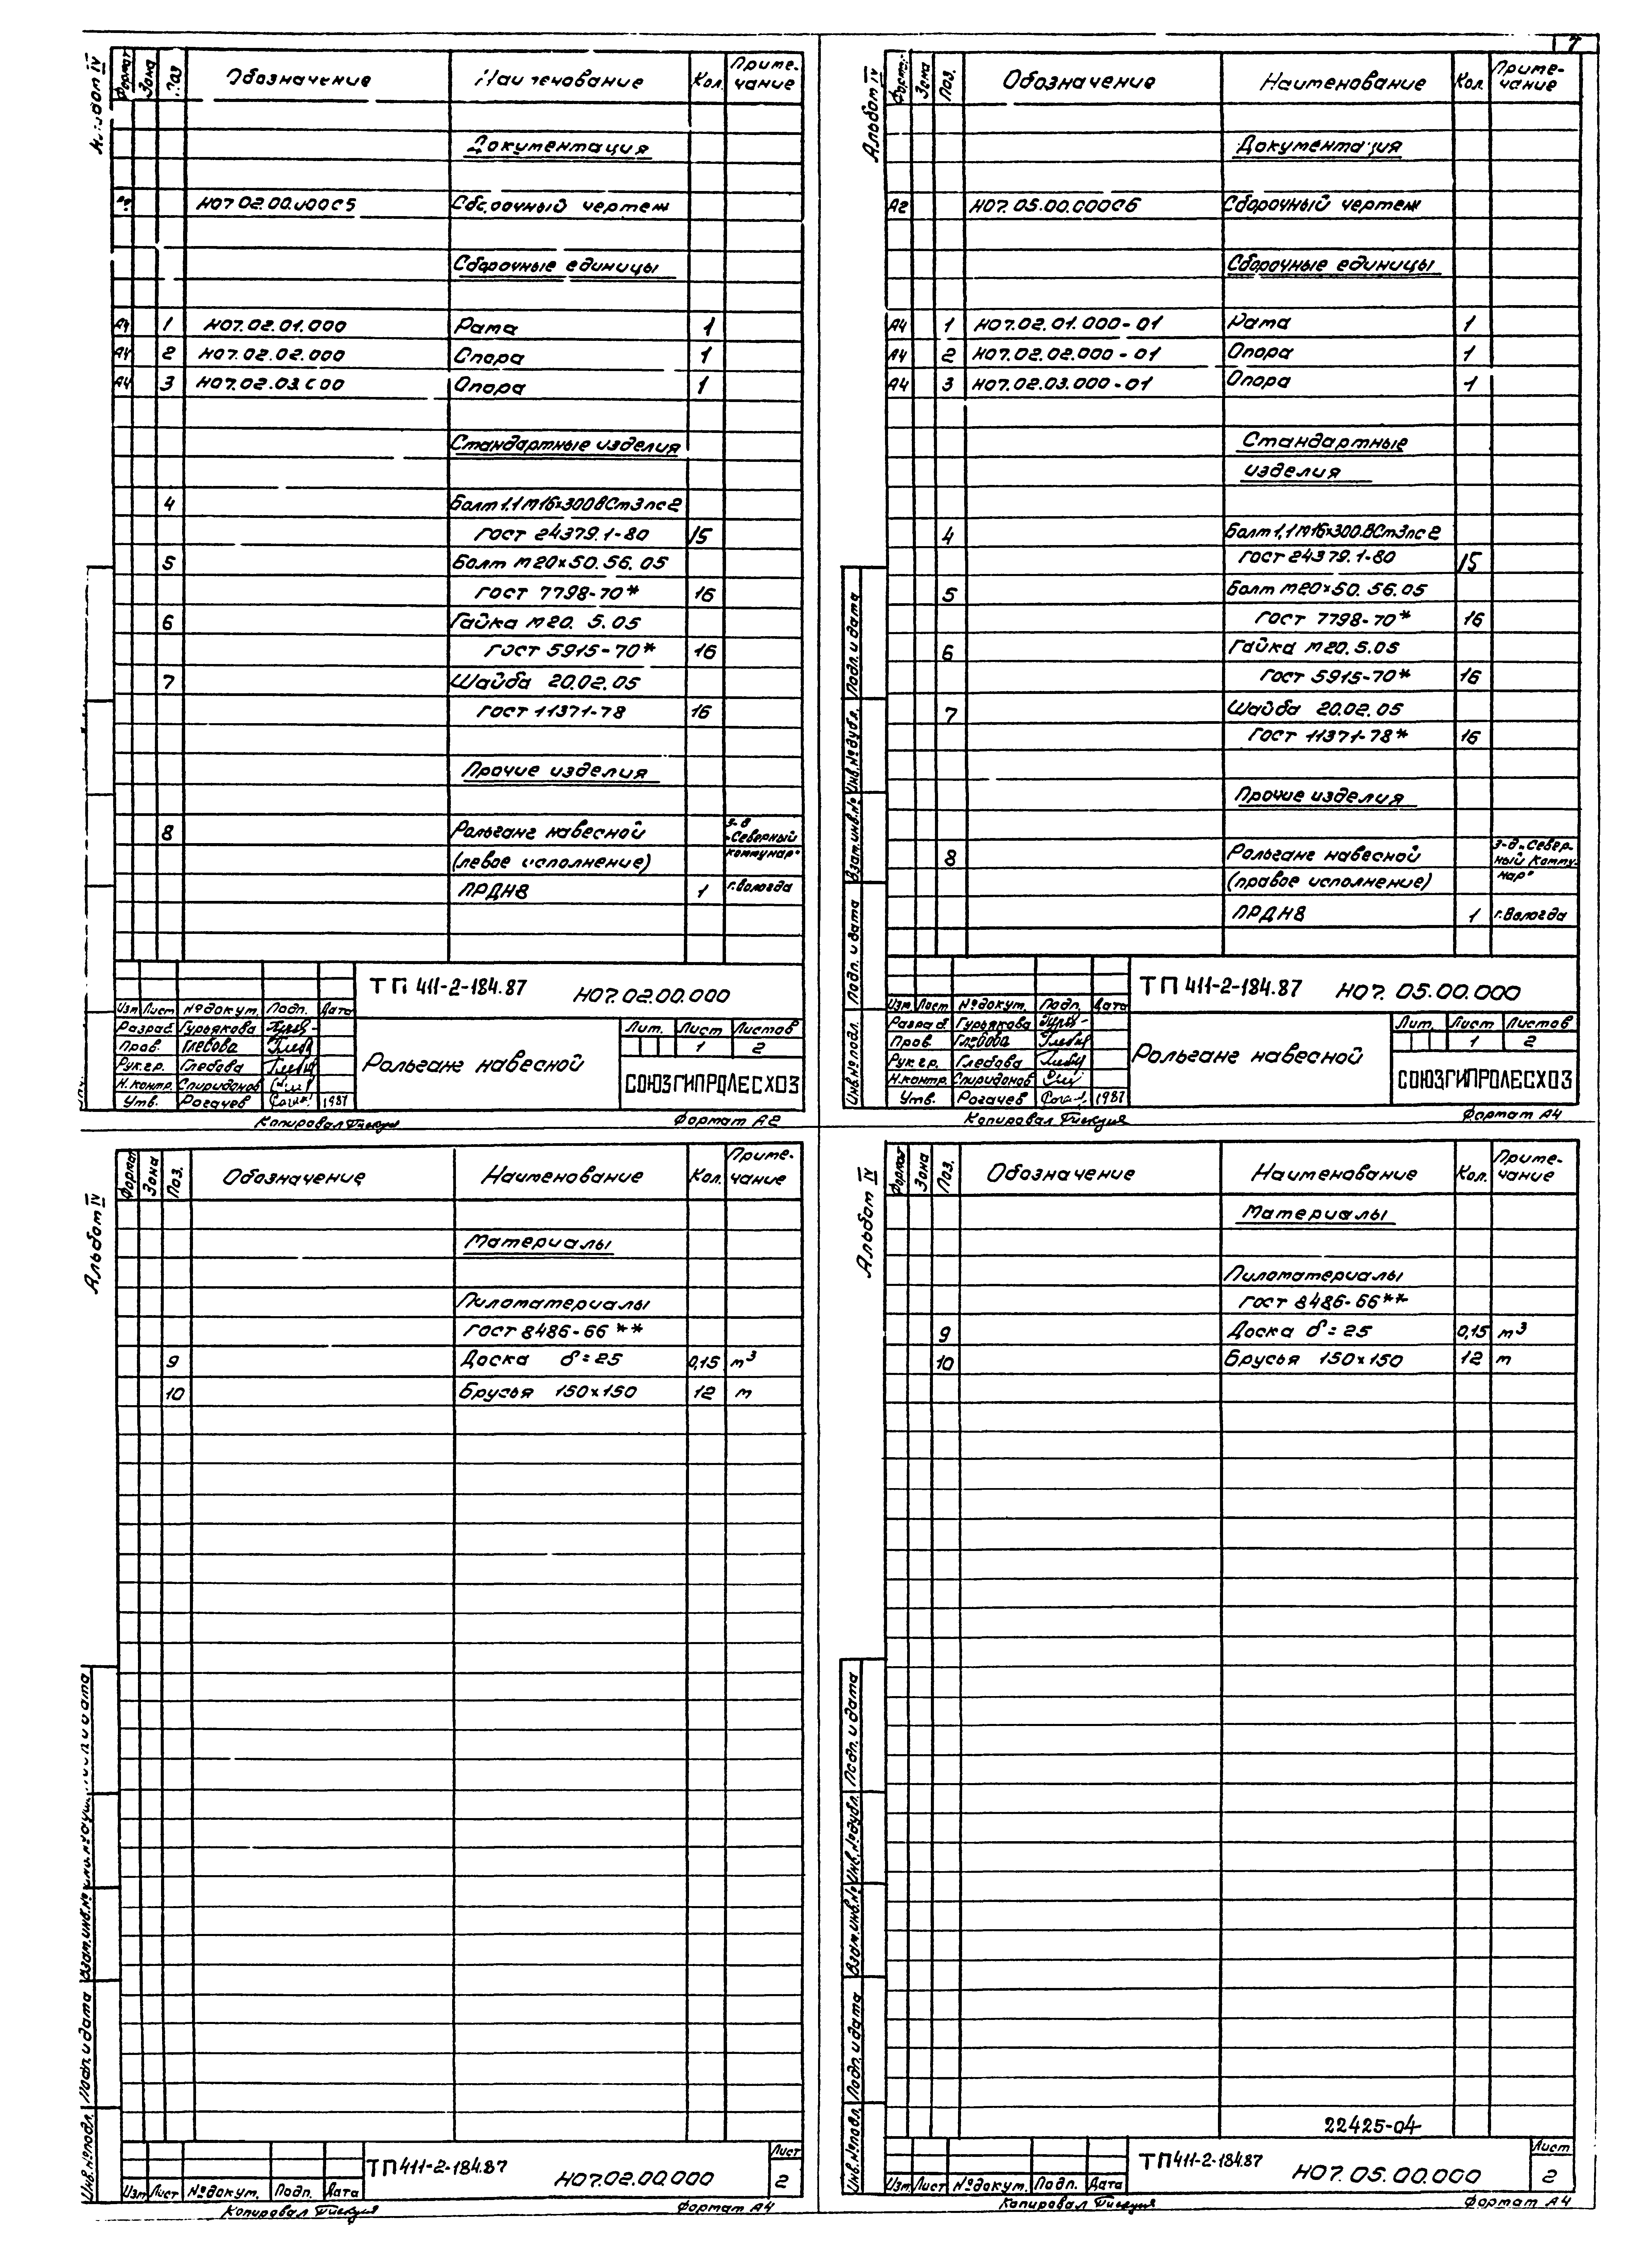 7
Альбом IV
Формат Зона Поз. Обозначение Наименование Кол. Примечание
Документация
НО7 02.00.000СБ Сборочный чертеж
Сборочные единицы
А4 1 НО7.02.01.000 Рама 1
А4 2 НО7.02.02.000 Опора 1
А4 3 НО7.02.03.000 Опора 1
Стандартные изделия
4 Болт 1.1 М16х300 ВСт3пс2
ГОСТ 24379.1-80 15
5 Болт М20х50.56.05
ГОСТ 7798-70* 16
6 Гайка М20.5.05
ГОСТ 5915-70* 16
7 Шайба 20.02.05
ГОСТ 11371-78 16
Прочие изделия
8 Рольганг навесной з-д „Северный
(левое исполнение) коммунар"
ПРДН8 1 г.Вологда
ТП 411-2-184.87 НО7.02.00.000
Изм Лист № докум. Подп. Дата
Разраб. Гурьякова
Пров. Глебова
Рук.гр. Глебова
Н.контр. Спиридонов
Утв. Рогачев 1987
Рольганг навесной
Лит. Лист Листов
1 2
СОЮЗГИПРОЛЕСХОЗ
Копировал Формат А2
Альбом IV
Формат Зона Поз. Обозначение Наименование Кол. Примечание
Документация
А2 НО7.05.00.000СБ Сборочный чертеж
Сборочные единицы
А4 1 НО7.02.01.000-01 Рама 1
А4 2 НО7.02.02.000-01 Опора 1
А4 3 НО7.02.03.000-01 Опора 1
Стандартные
изделия
4 Болт 1,1 М16х300.ВСт3пс2
ГОСТ 24379.1-80 15
5 Болт М20х50.56.05
ГОСТ 7798-70* 16
6 Гайка М20.5.05
ГОСТ 5915-70* 16
7 Шайба 20.02.05
ГОСТ 11371-78* 16
Прочие изделия
8 Рольганг навесной з-д „Север-
(правое исполнение) ный Комму-
нар"
ПРДН8 1 г.Вологда
Инв.№ подл. Подп. и дата Взам.инв.№ Инв.№ дубл. Подп. и дата
ТП 411-2-184.87 НО7.05.00.000
Изм Лист № докум. Подп. Дата
Разраб. Гурьякова
Пров. Глебова
Рук.гр. Глебова
Н.контр. Спиридонов
Утв. Рогачев 1987
Рольганг навесной
Лит. Лист Листов
1 2
СОЮЗГИПРОЛЕСХОЗ
Копировал Формат А4
Альбом IV
Формат Зона Поз. Обозначение Наименование Кол. Примечание
Материалы
Пиломатериалы
ГОСТ 8486-66**
9 Доска δ=25 0,15 м³
10 Брусья 150х150 12 м
Инв.№ подл. Подп. и дата Взам.инв.№
ТП 411-2-184.87 НО7.02.00.000
Изм Лист № докум. Подп. Дата
Лист
2
Копировал Формат А4
Альбом IV
Формат Зона Поз. Обозначение Наименование Кол. Примечание
Материалы
Пиломатериалы
ГОСТ 8486-66**
9 Доска δ=25 0,15 м³
10 Брусья 150х150 12 м
Инв.№ подл. Подп. и дата Взам.инв.№ Инв.№ дубл. Подп. и дата
22425-04
ТП 411-2-184.87 НО7.05.00.000
Изм Лист № докум. Подп. Дата
Лист
2
Копировал Формат А4